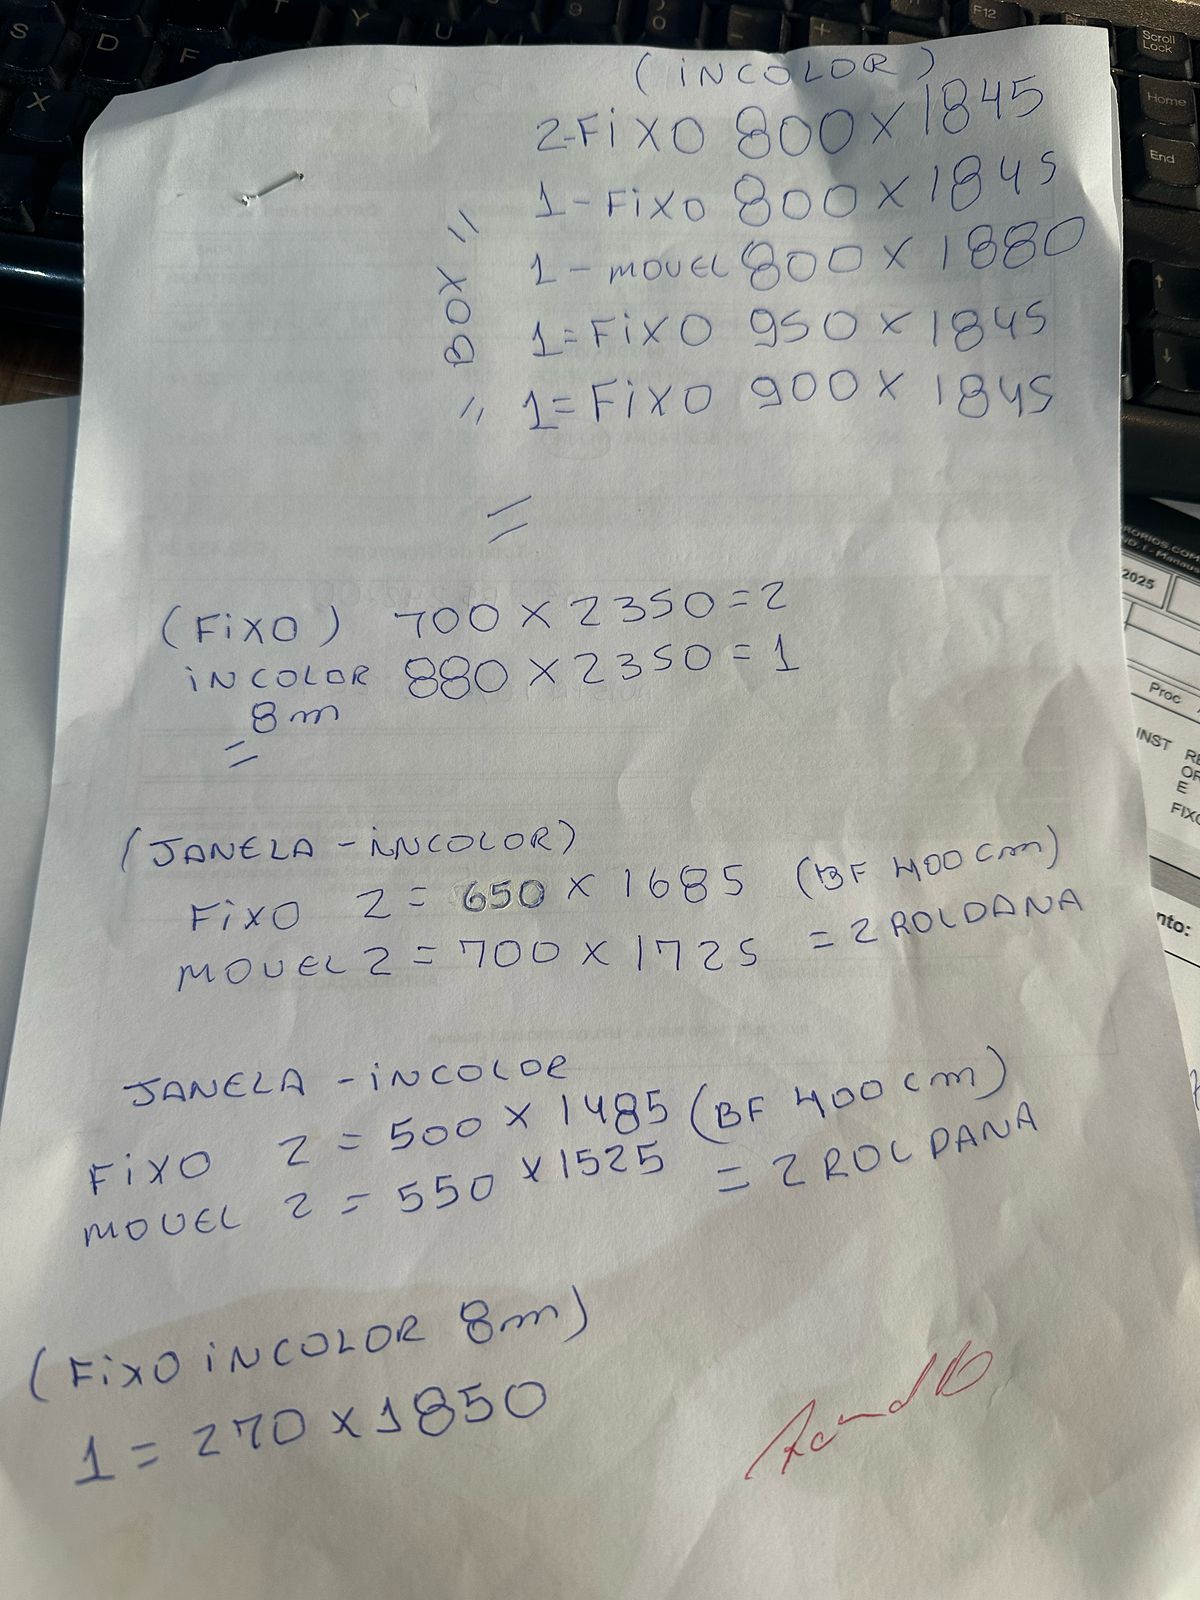 (iNCOLOR)
2-FiXO 800 X 1845
1 - FiXO 800 X 1845
1 - MOVEL 800 X 1880
1 = FiXO 950 X 1845
1 = FiXO 900 X 1845
" BOX "
(FiXO) 700 X 2350 = 2
iNCOLOR 880 X 2350 = 1
8m
(JANELA - iNCOLOR)
FiXO 2 = 650 X 1685 (BF 400cm)
MOVEL 2 = 700 X 1725 = 2 ROLDANA
JANELA - iNCOLOR
FiXO 2 = 500 X 1485 (BF 400cm)
MOVEL 2 = 550 X 1525 = 2 ROLDANA
(FiXO iNCOLOR 8m)
1 = 270 X 1850
S
D
F
T
Y
U
X
F12
Scroll
Lock
Home
End
2025
Proc
INST
FIXO
nto: